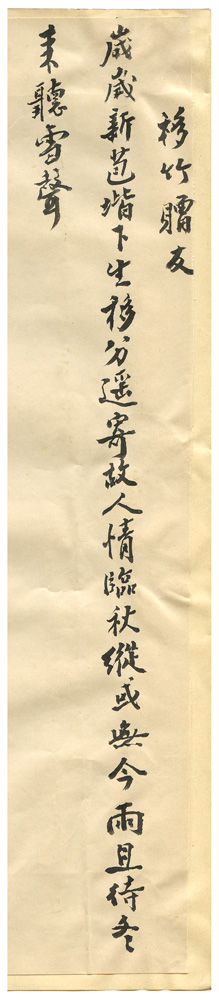 移竹贈友
歲歲新苞堦下生移分遥寄故人情臨秋縱或無今雨且待冬
来聽雪聲